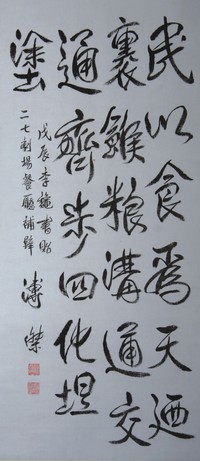 民以食為天廼
裹餱粮溝通交
通齊步四化坦
塗
戊辰季穐書貽
二七劇場餐廳補壁
溥傑